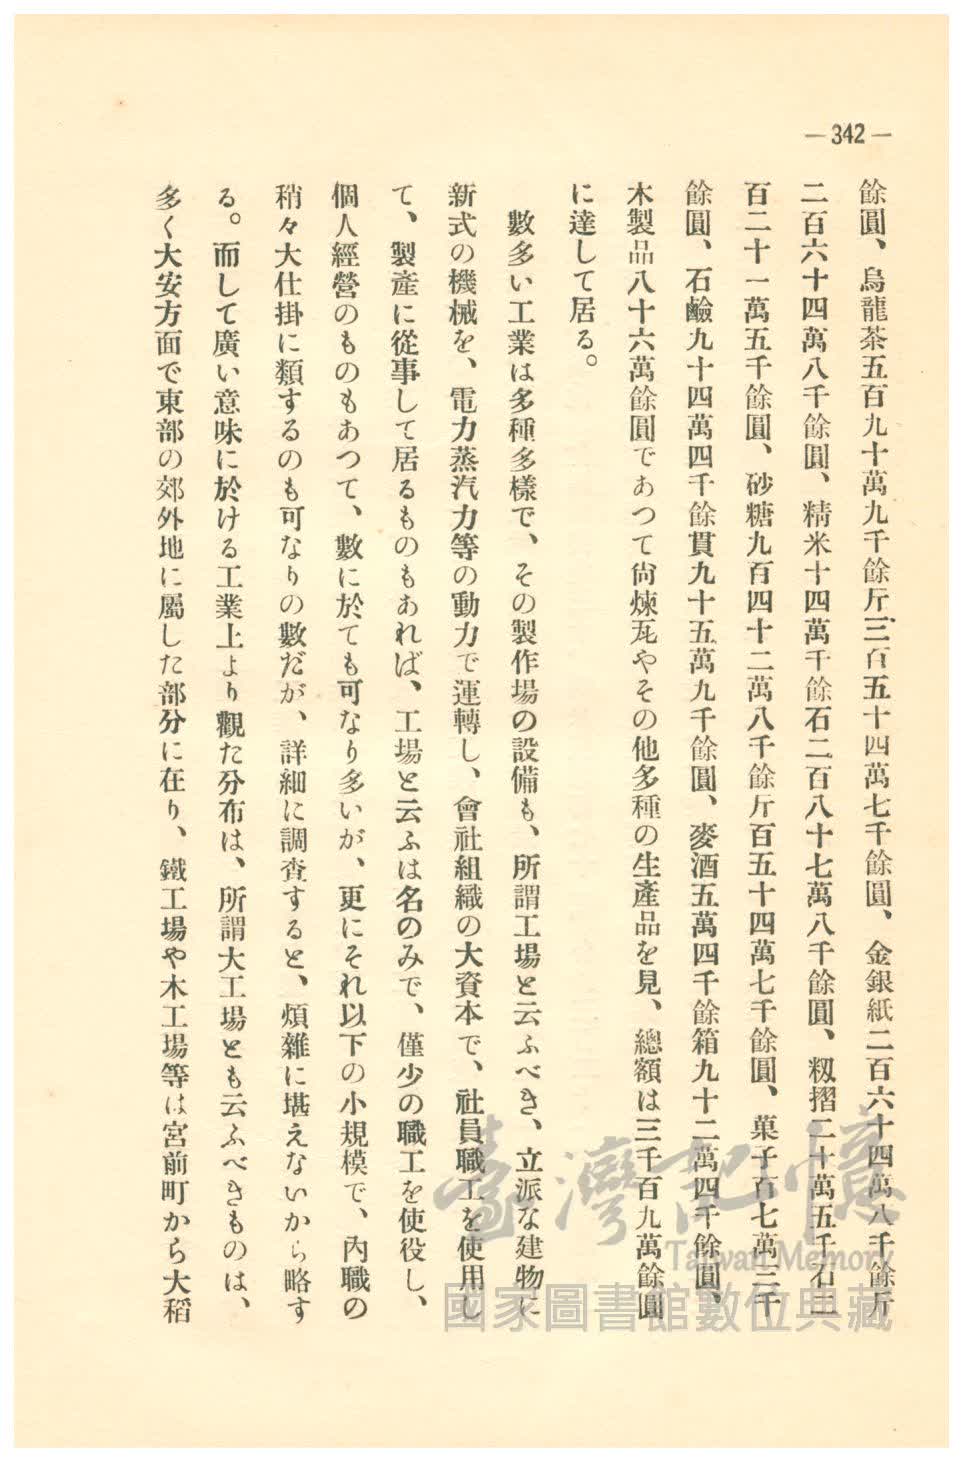 —342—
餘圓、烏龍茶五百九十萬九千餘斤三百五十四萬七千餘圓、金銀紙二百六十四萬八千餘斤
二百六十四萬八千餘圓、精米十四萬千餘石二百八十七萬八千餘圓、籾摺二十萬五千石二
百二十一萬五千餘圓、砂糖九百四十二萬八千餘斤百五十四萬七千餘圓、菓子百七萬三千
餘圓、石鹼九十四萬四千餘貫九十五萬九千餘圓、麥酒五萬四千餘箱九十二萬四千餘圓、
木製品八十六萬餘圓であつて尙煉瓦やその他多種の生產品を見、總額は三千百九萬餘圓
に達して居る。
數多い工業は多種多樣で、その製作場の設備も、所謂工場と云ふべき、立派な建物に
新式の機械を、電力蒸汽力等の動力で運轉し、會社組織の大資本で、社員職工を使用し
て、製產に從事して居るものもあれば、工場と云ふは名のみで、僅少の職工を使役し、
個人經營のものもあつて、數に於ても可なり多いが、更にそれ以下の小規模で、內職の
稍々大仕掛に類するのも可なりの數だが、詳細に調査すると、煩雜に堪えないから略す
る。而して廣い意味に於ける工業上より觀た分布は、所謂大工場とも云ふべきものは、
多く大安方面で東部の郊外地に屬した部分に在り、鐵工場や木工場等は宮前町から大稻
臺灣記憶
Taiwan Memory
國家圖書館數位典藏